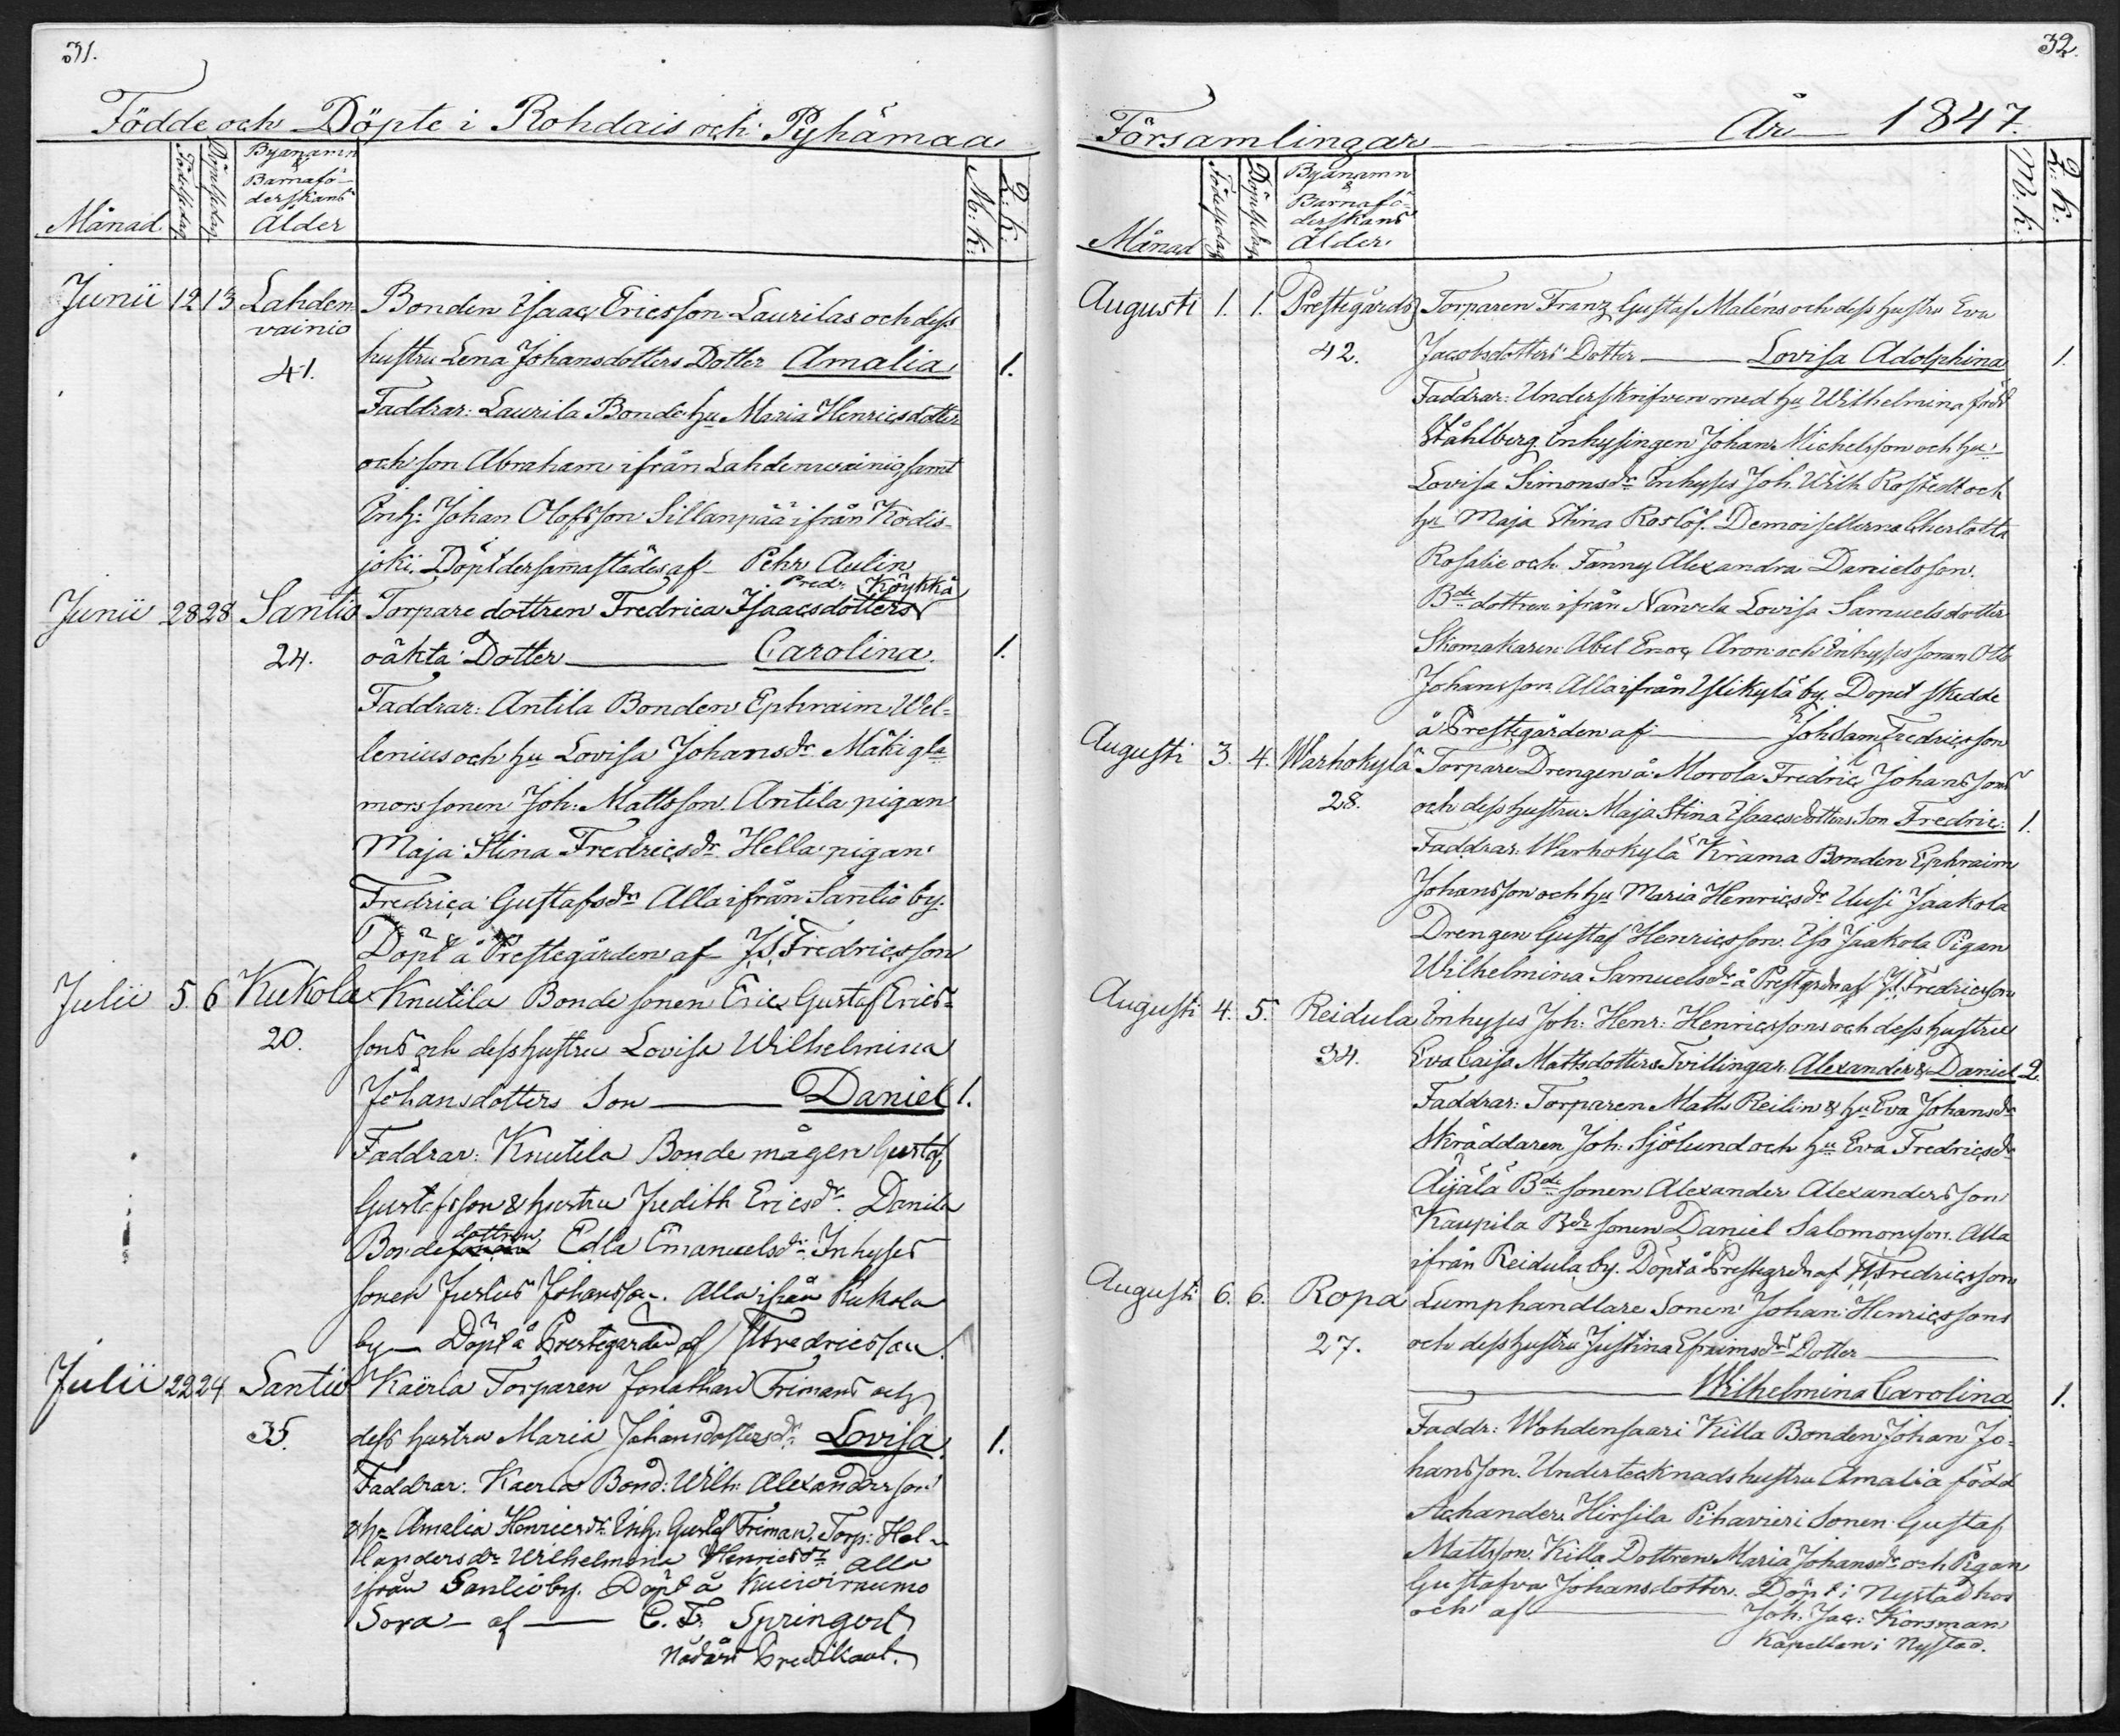 31.
Födde och Döpte i Rohdais och Pyhämaa
Månad
Födelsedag
Döpelsedag
Byanamn
&
Barnafö-
derskans
Ålder
M: k:
Q: k:
Junii 12 13 Lahden Bonden Isaac Ericsson Laurilas och dess
vainio
41. hustru Lena Johansdotters Dotter Amalia 1.
Faddrar: Laurila Bonde hu Maria Henricsdotter
och son Abraham ifrån Lahdenwainio samt
Inh: Johan Olofsson Sillanpää ifrån Kodis-
joki. Döpt dersammastädes af Pehr Aulin
Pred: Köykkä
Junii 28 28 Santio Torpare dottren Fredrica Isaacsdotters
24. oäkta Dotter Carolina. 1.
Faddrar: Antila Bonden Ephraim Wel=
lenius och hu Lovisa Johansdr Mäki gla
mors sonen Joh: Mattsson. Antila pigan
Maja Stina Fredricsdr Hella pigan
Fredrica Gustafsdr Alla ifrån Santio by.
Döpt å Prestegården af J.S. Fredricsson
Julii 5. 6 Kukola Knutila Bonde sonen Eric Gustaf Erics-
20. sons och dess hustru Lovisa Wilhelmina
Johansdotters Son Daniel 1.
Faddrar: Knutila Bonde mågen Gustaf
Gustafsson & hustru Judith Ericsdr Danila
dottren
Bonde Edla Emanuelsdr Inhyses
sonen Julius Johansson. Alla ifrån Kukola
by Döpt å Prestegården af Fredricsson.
Julii 22 24 Santio Kaerla Torparen Jonathan Frimans och
35. dess hustru Maria Johansdotters dr Lovisa. 1.
Faddrar: Kaerla Bond: Wilh: Alexandersson
& hu Amalia Henricsdr Inh: Gustaf Friman. Torp: Hel-
landers dr Wilhelmina Henricsdr alla
ifrån Santio by. Döpt å Kuivirauma
Sora af C. F. Springert
Nådårs Predikant.
32.
Församlingar År 1847.
Månad
Födelsedag
Döpelsedag
Byanamn
&
Barnafö-
derskans
Ålder
M: k:
Q: k:
Augusti 1. 1. Prestegårds Torparen Franz Gustaf Maléns och dess hustru Eva
42. Jacobsdotters Dotter Lovisa Adolphina 1.
Faddrar: Underskrifven med hu Wilhelmina född
Ståhlberg. Inhysingen Johan Michelsson och hu
Lovisa Simonsdr Inhyses Joh. Wilh Rostedt och
hu Maja Stina Roslöf. Demoisellerna Charlotta
Rosalie och Fanny Alexandra Danielsson.
Bde dottren ifrån Narvela Lovisa Samuelsdotter
Skomakaren Abel Enoc Aron och Inhyses sonen Otto
Johansson. Alla ifrån Ylikylä by. Dopet skedde
å Prestegården af Joh Sam Fredricsson
Augusti 3. 4. Warhokylä Torpare Drengen å Morola Fredric Johanssons
28. och dess hustru Maja Stina Isaacsdotters Son Fredric: 1.
Faddrar: Warhokylä Krama Bonden Ephraim
Johansson och hu Maria Henricsdr Uusi Jaakola
Drengen Gustaf Henricsson. Iso Jaakola Pigan
Wilhelmina Samuelsdr å Prestgrdn af J.S. Fredricsson
Augusti 4. 5. Reidula Inhyses Joh: Henr: Henricssons och dess hustru
34. Eva Caisa Mattsdotters Tvillingar Alexander & Daniel 2.
Faddrar: Torparen Matts Reilin & hu Eva Johansdr
Skräddaren Joh: Sjölund och hu Eva Fredricsdr
Äijälä Bde sonen Alexander Alexandersson
Kaupila Bde sonen Daniel Salomonsson. Alla
ifrån Reidula by. Döpt å Prestegrdn af J.S. Fredricsson
Augusti 6. 6. Ropa Lumphandlare Sonen Johan Henricssons
27. och dess hustru Justina Efraimsdrs Dotter
Wilhelmina Carolina 1.
Faddr: Wohdensaari Killa Bonden Johan Jo=
hansson. Undertecknads hustru Amalia född
Achander. Hirsila Pihavieri Sonen Gustaf
Mattsson. Killa Dottren Maria Johansdr och Pigan
Gustafva Johansdotter. Döpt i Nystad hos
och af Joh: Jac: Korsman
Kapellan i Nystad.